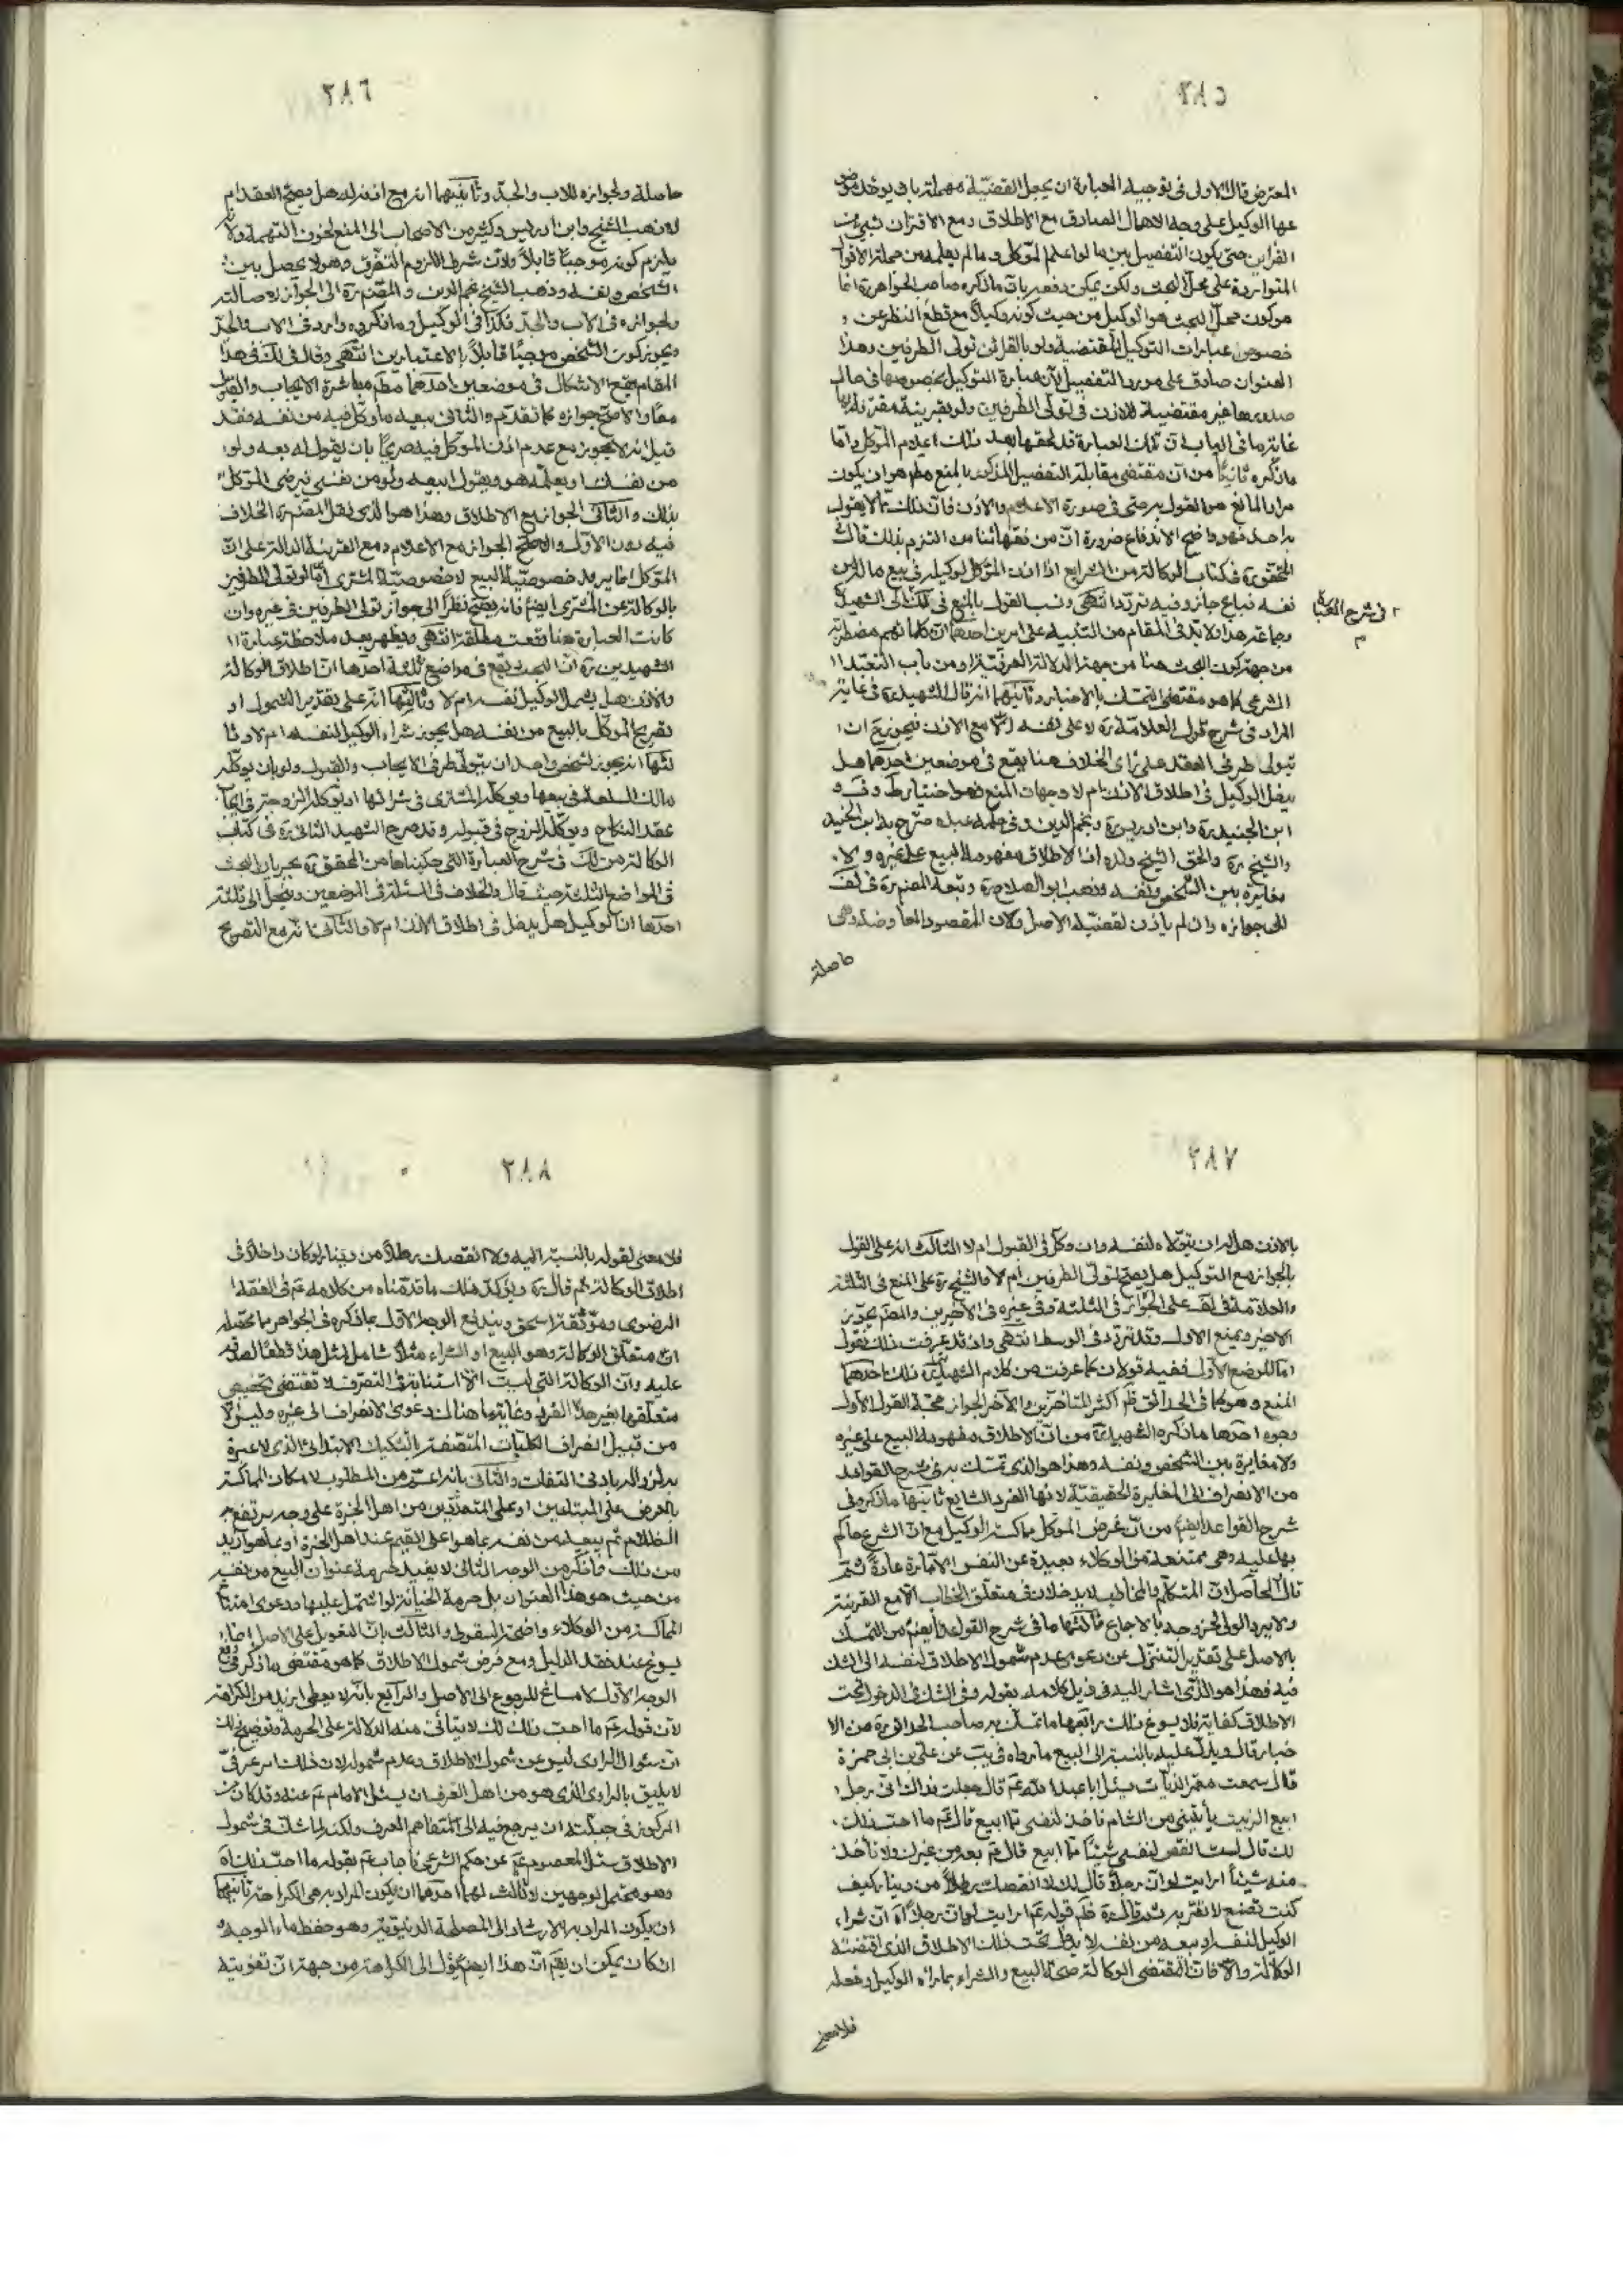 ٢٨٥
المعترض قال الاولى فى توجيه العبارة ان يجعل القضيّة مهملة بان يوخذ موضو
عها الوكيل على وجه الاهمال الصادق مع الاطلاق ومع الاقتران بشىء من
القراين حتى يكون التفصيل بين ما لو اعلم الموكل وما لم يعلمه من جملة الاقوال
المتواردة على محل البحث ولكن يمكن دفعه بان ما ذكره صاحب الجواهر ره انما
هو كون محل البحث هو الوكيل من حيث كونه وكيلاً مع قطع النظر عن
خصوص عبارات التوكيل المقتضية ولو بالقرائن تولى الطرفين وهذا
العنوان صادق على مورد التفصيل لان عبارة التوكيل بخصوصها فى حال
صدورها غير مقتضية للاذن فى تولى الطرفين ولو بقرينة مقترنة بها
غاية ما فى الباب ان تلك العبارة قد لحقها بعد ذلك اعلام الموكل وامّا
ما ذكره ثانياً من ان مقتضى مقابلة التفصيل المذكور بالمنع مطم هو ان يكون
مراد المانع هو القول به حتى فى صورة الاعلام والاذن فان ذلك مما لا يقول
به احد فهو واضح الاندفاع ضرورة انّ من فقهائنا من التزم بذلك قال
المحقق ره فى كتاب الوكالة من الشرايع اذا اذن الموكل لوكيله فى بيع ماله من
نفسه فباع جاز وفيه تردد انتهى ونسب القول بالمنع فى لك الى الشهيد ره
وجماعة هذا ولا بد فى المقام من التنبيه على امرين احدهما ان كلماتهم مضطربة
من جهة كون البحث هنا من جهة الدلالة العرفيّة او من باب التعبّد ا
لشرعى كما هو مقتضى التمسك بالاخبار وثانيهما انه قال الشهيد ره فى غاية
المراد فى شرح قول العلامة ره لا على نفسه الا مع الاذن فيجوز مع ان
يتولى طرفى العقد على رأى الخلاف هنا يقع فى موضعين احدهما هل
يدخل الوكيل فى اطلاق الاذن ام لا وجهات المنع فهو اختيار ط و ف و
ابن الجنيد ره وابن ادريس ره ونجم الدين وفى حكمه عبده صرّح به ابن الجنيد
والشيخ ره والحق الشيخ ولده اذا الاطلاق مفهومه البيع على غيره ولا
مغايرة بين الشخص ونفسه وذهب ابو الصلاح ره وتبعه المصنف ره فى لف
الى جوازه وان لم ياذن لقضيّة الاصل ولان المقصود المعاوضة وهى
حاصلة
فى شرح العبارة
م
٢٨٦
حاصلة ولجوازه للاب والجدّ وثانيهما انه مع اذنه له هل يصحّ العقد ام
لا ذهب الشيخ وابن ادريس وكثير من الاصحاب الى المنع لخوف التهمة ولانه
يلزم كونه موجباً قابلاً ولان شرط اللزوم التفرق وهو لا يحصل بين
الشخص ونفسه وذهب الشيخ نجم الدين والمصنف ره الى الجواز لاصالته
ولجوازه فى الاب والجدّ فكذا فى الوكيل وما ذكروه وارد فى الاب والجدّ
ويجوز كون الشخص موجباً قابلاً بالاعتبارين انتهى وقال فى لك فى هذا
المقام يقع الاشكال فى موضعين احدهما مطم مباشرة الايجاب والقبول
معاً والاصح جوازه كما تقدّم والثانى بيعه ما وكل فيه من نفسه فقد
قيل انه لا يجوز مع عدم اذن الموكل فيه صريحاً بان يقول له بعه ولو
من نفسك او يعلمه هو ويقول ابيعه ولو من نفسى فيرضى الموكل
بذلك والثانى الجواز مع الاطلاق وهذا هو الذى نقل المصنف ره الخلاف
فيه دون الاول والاصح الجواز مع الاعلام ومع القرينة الدالة على ان
الموكل انما يريد خصوصيّة البيع لا خصوصيّة المشترى امّا لو تولى الطرفين
بالوكالة عن المشترى ايضا فانه يصحّ نظراً الى جواز تولى الطرفين فى غيره وان
كانت العبارة هنا وقعت مطلقة انتهى ويظهر بعد ملاحظة عبارة ا
لشهيدين ره انّ البحث يقع فى مواضع ثلثة احدها انّ اطلاق الوكالة
والاذن هل يشمل الوكيل نفسه ام لا وثانيها انه على تقدير الشمول او
تصريح الموكل بالبيع من نفسه هل يجوز شراء الوكيل لنفسه ام لا وثا
لثها انه يجوز لشخص واحد ان يتولى طرفى الايجاب والقبول ولو بان يوكله
مالك السلعة فى بيعها ويوكله المشترى فى شرائها او توكله الزوجة فى ايجاب
عقد النكاح ويوكله الزوج فى قبوله وقد صرح الشهيد الثانى ره فى كتاب
الوكالة من لك فى شرح العبارة التى حكيناها من المحقق ره بجريان البحث
فى المواضع الثلثة حيث قال والخلاف فى المسئلة فى الموضعين وينحل الى ثلثة
احدها ان الوكيل هل يدخل فى اطلاق الاذن ام لا والثانى انه مع التصريح
٢٨٧
بالاذن هل له ان يتولاه لنفسه وان وكّل فى القبول ام لا الثالث انه على القول
بالجواز مع التوكيل هل يصحّ تولى الطرفين ام لا والشيخ ره على المنع فى الثلثة
والعلامة فى لف على الجواز فى الثلثة وفى غيره فى الاخيرين والمصنف يجوّز
الاخير ويمنع الاول وقد تردد فى الوسط انتهى واذ قد عرفت ذلك نقول
اما الموضع الاول ففيه قولان كما عرفت من كلام الشهيد ره ذلك احدهما
المنع وهو كما فى الحدائق ظم اكثر المتاخرين والاخر الجواز حجّة القول الاول
وجوه احدها ما ذكره الشهيد ره من انّ الاطلاق مفهومه البيع على غيره
ولا مغايرة بين الشخص ونفسه وهذا هو الذى تمسّك به فى شرح القواعد
من الانصراف الى المغايرة الحقيقيّة لانها الفرد الشايع ثانيها ما ذكره فى
شرح القواعد ايضا من انّ غرض الموكل مماكسة الوكيل مع انّ الشرع حاكم
بها عليه وهى ممتنعة من الوكلاء بعيدة عن النفس الامارة عادةً ثم
قال الحاصل ان المتكلم والمخاطب لا يدخلان فى متعلق الخطاب الا مع القرينة
ولا يرد الولى لخروجه بالاجماع ثالثها ما فى شرح القواعد ايضا من التمسك
بالاصل على تقدير التنزل عن دعوى عدم شمول الاطلاق لنفسه الى الشك
فيه فهذا هو الذى اشار اليه فى ذيل كلامه بقوله وفى الشك فى الدخول تحت
الاطلاق كفاية فلا يسوغ ذلك رابعها ما تمسّك به صاحب الحدائق ره من الا
خبار قال ويدلّ عليه بالنسبة الى البيع ما رواه فى يب عن على بن ابى حمزة
قال سمعت معمر الزيات يسئل ابا عبد الله ع قال جعلت فداك انى رجل
ابيع الزيت يأتينى من الشام فاخذ لنفسى مما ابيع قال ع ما احب ذلك
لك قال لست انقص لنفسى شيئاً مما ابيع قال ع بعه من غيرك ولا تأخذ
منه شيئاً ارايت لو ان رجلاً قال لك لا انقصك رطلاً من دينار كيف
كنت تصنع لا تقربه ثم قال ره ظم قوله ع ارايت لو ان رجلاً اه ان شراء
الوكيل لنفسه او بيعه من نفسه لا يدخل تحت ذلك الاطلاق الذى اقتضته
الوكالة والا فان المقتضى الوكالة صحة البيع والشراء بما راه الوكيل وفعله
فلا معنى
٢٨٨
فلا معنى لقوله بالنسبة اليه ولا انقصك رطلاً من دينار لو كان داخلاً فى
اطلاق الوكالة ثم قال ره ويؤكد ذلك ما قدمناه من كلامه ع فى الفقه ا
لرضوى وموثقة اسحق ويندفع الوجه الاول بما ذكره فى الجواهر ما محصله
ان متعلق الوكالة وهو البيع او الشراء مثلاً شامل لمثل هذا قطعاً لصدقه
عليه وان الوكالة التى ليست الا استنابة فى التصرف لا تقتضى تخصيص
متعلقها بغير هذا الفرد وغاية ما هناك دعوى الانصراف الى غيره وليس الا
من قبيل انصراف الكليات المتصفة بالتشكيك الابتدائى الذى لا عبرة
به لزواله بادنى التفات والثانى بانه اعم من المطلوب لامكان المماكسة
بالعرض على المبتاعين او على المتعددين من اهل الخبرة على وجه يرتفع به
الظلام ثم يبيعه من نفسه بما هو اعلى القيم عند اهل الخبرة او بما هو ازيد
من ذلك فما ذكر من الوجه الثانى لا يفيد حرمة عنوان البيع من نفسه
من حيث هو هذا العنوان بل حرمة الخيانة لو اشتمل عليها ودعوى امتناع
المماكسة من الوكلاء واضحة السقوط والثالث بان التعويل على الاصل انما
يسوغ عند فقد الدليل ومع فرض شمول الاطلاق كما هو مقتضى ما ذكر فى دفع
الوجه الاول لا مساغ للرجوع الى الاصل والرابع بانه لا يعطى ازيد من الكراهة
لان قوله ع ما احب ذلك لك لا يتاتى منه الدلالة على الحرمة وتوضيح ذلك
ان سئوال الراوى ليس عن شمول الاطلاق وعدم شموله لان ذلك امر عرفىّ
لا يليق بالراوى الذى هو من اهل العرف ان يسئل الامام ع عنه وقد كان من
المركوز فى جبلته ان يرجع فيه الى المتفاهم العرف ولكنه لما شك فى شمول
الاطلاق سئل المعصوم ع عن حكم الشرعى فاجاب ع بقوله ما احب ذلك اه
وهو محتمل لوجهين لا ثالث لهما احدهما ان يكون المراد به هى الكراهة ثانيهما
ان يكون المراد به الارشاد الى المصلحة الدنيوية وهو حفظ ماء الوجه و
ان كان يمكن ان يقم انّ هذا ايضم يؤل الى الكراهة من جهة ان تفويته